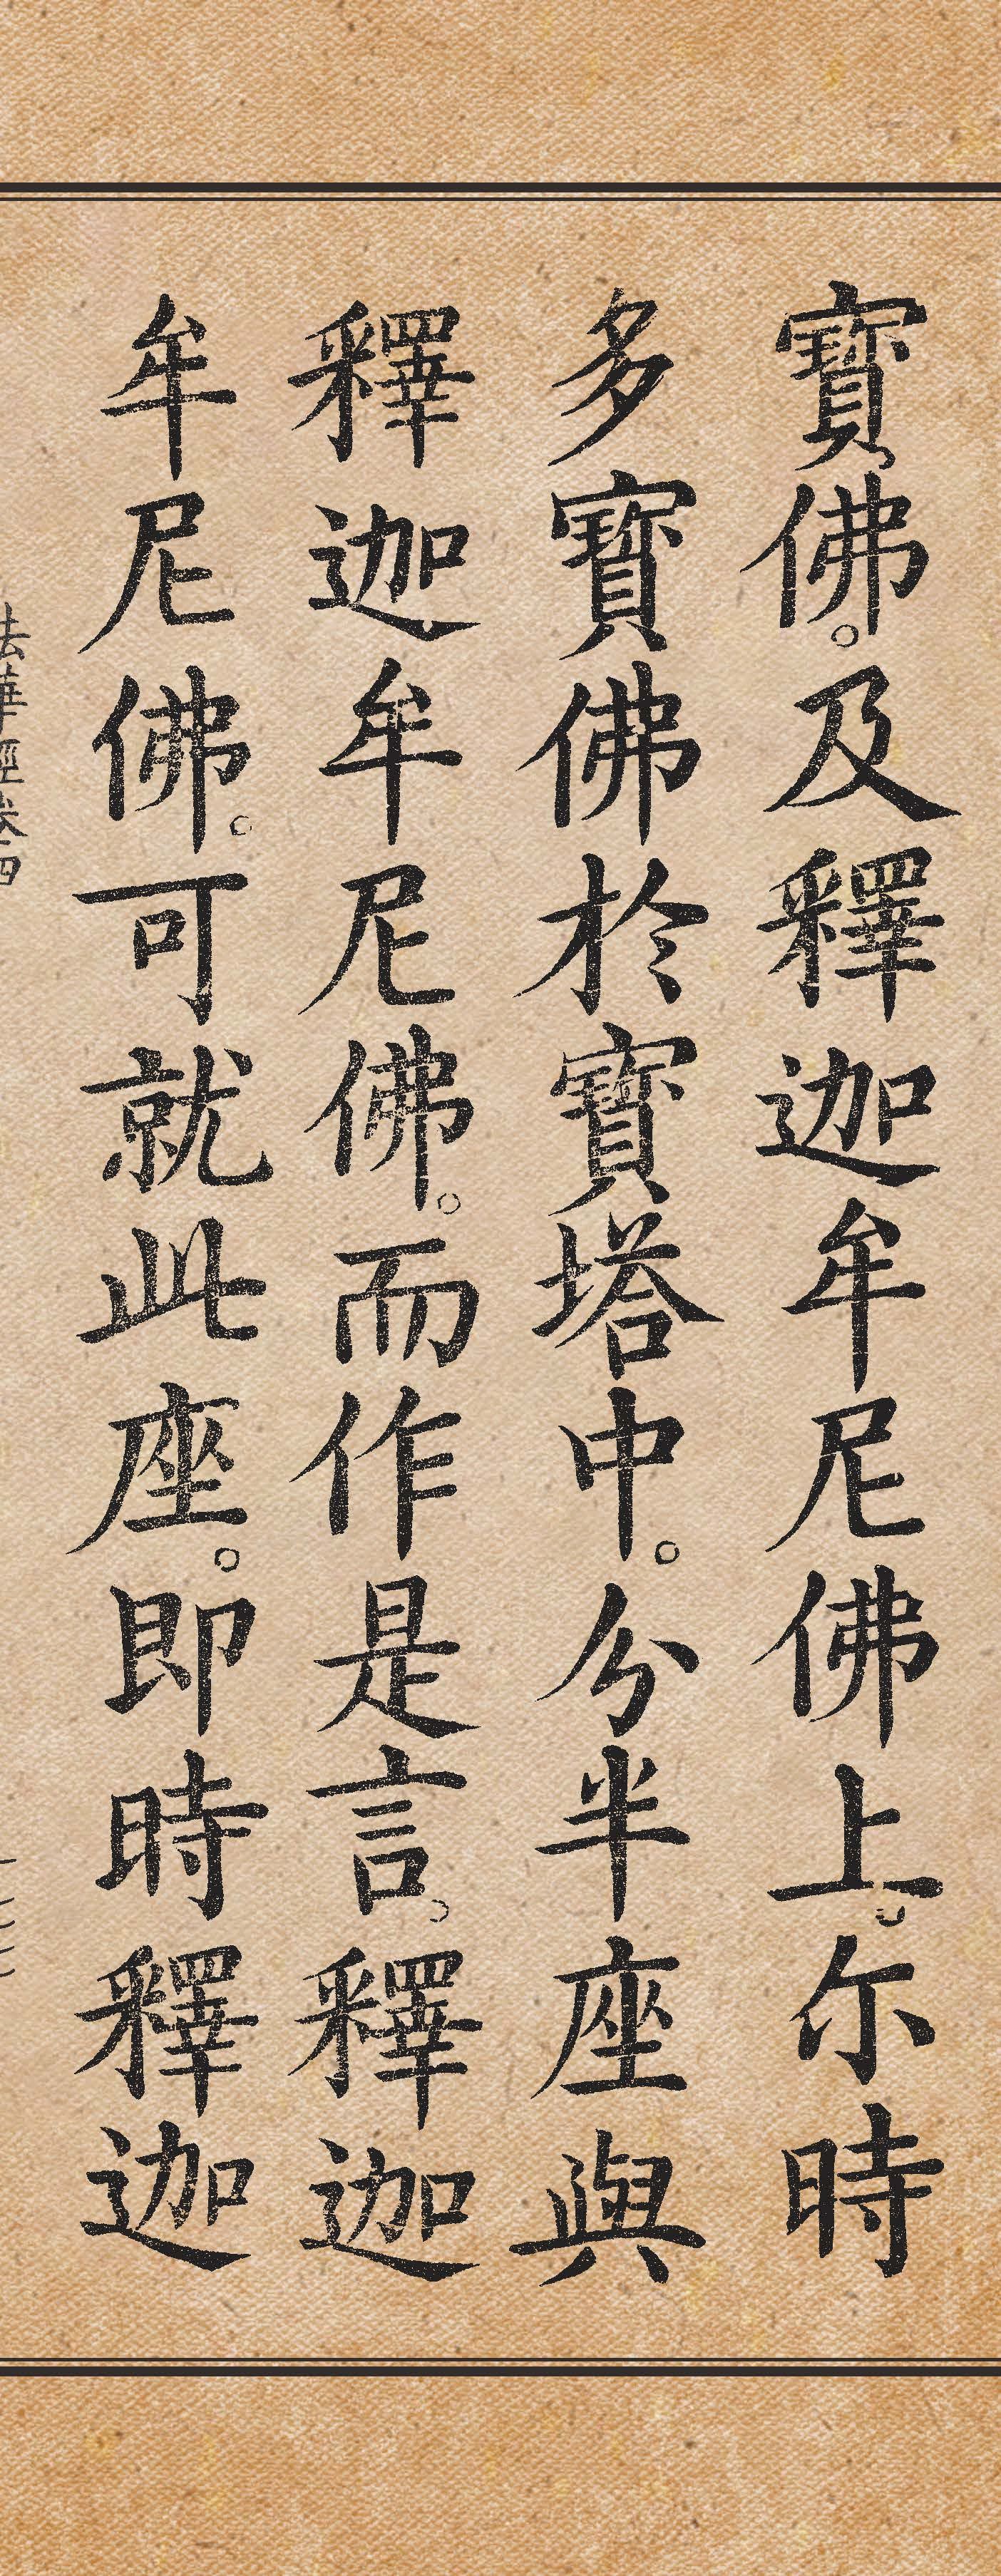 寶佛。及釋迦牟尼佛上。尒時
多寶佛於寶塔中。分半座與
釋迦牟尼佛。而作是言。釋迦
牟尼佛。可就此座。即時釋迦
法華經卷四